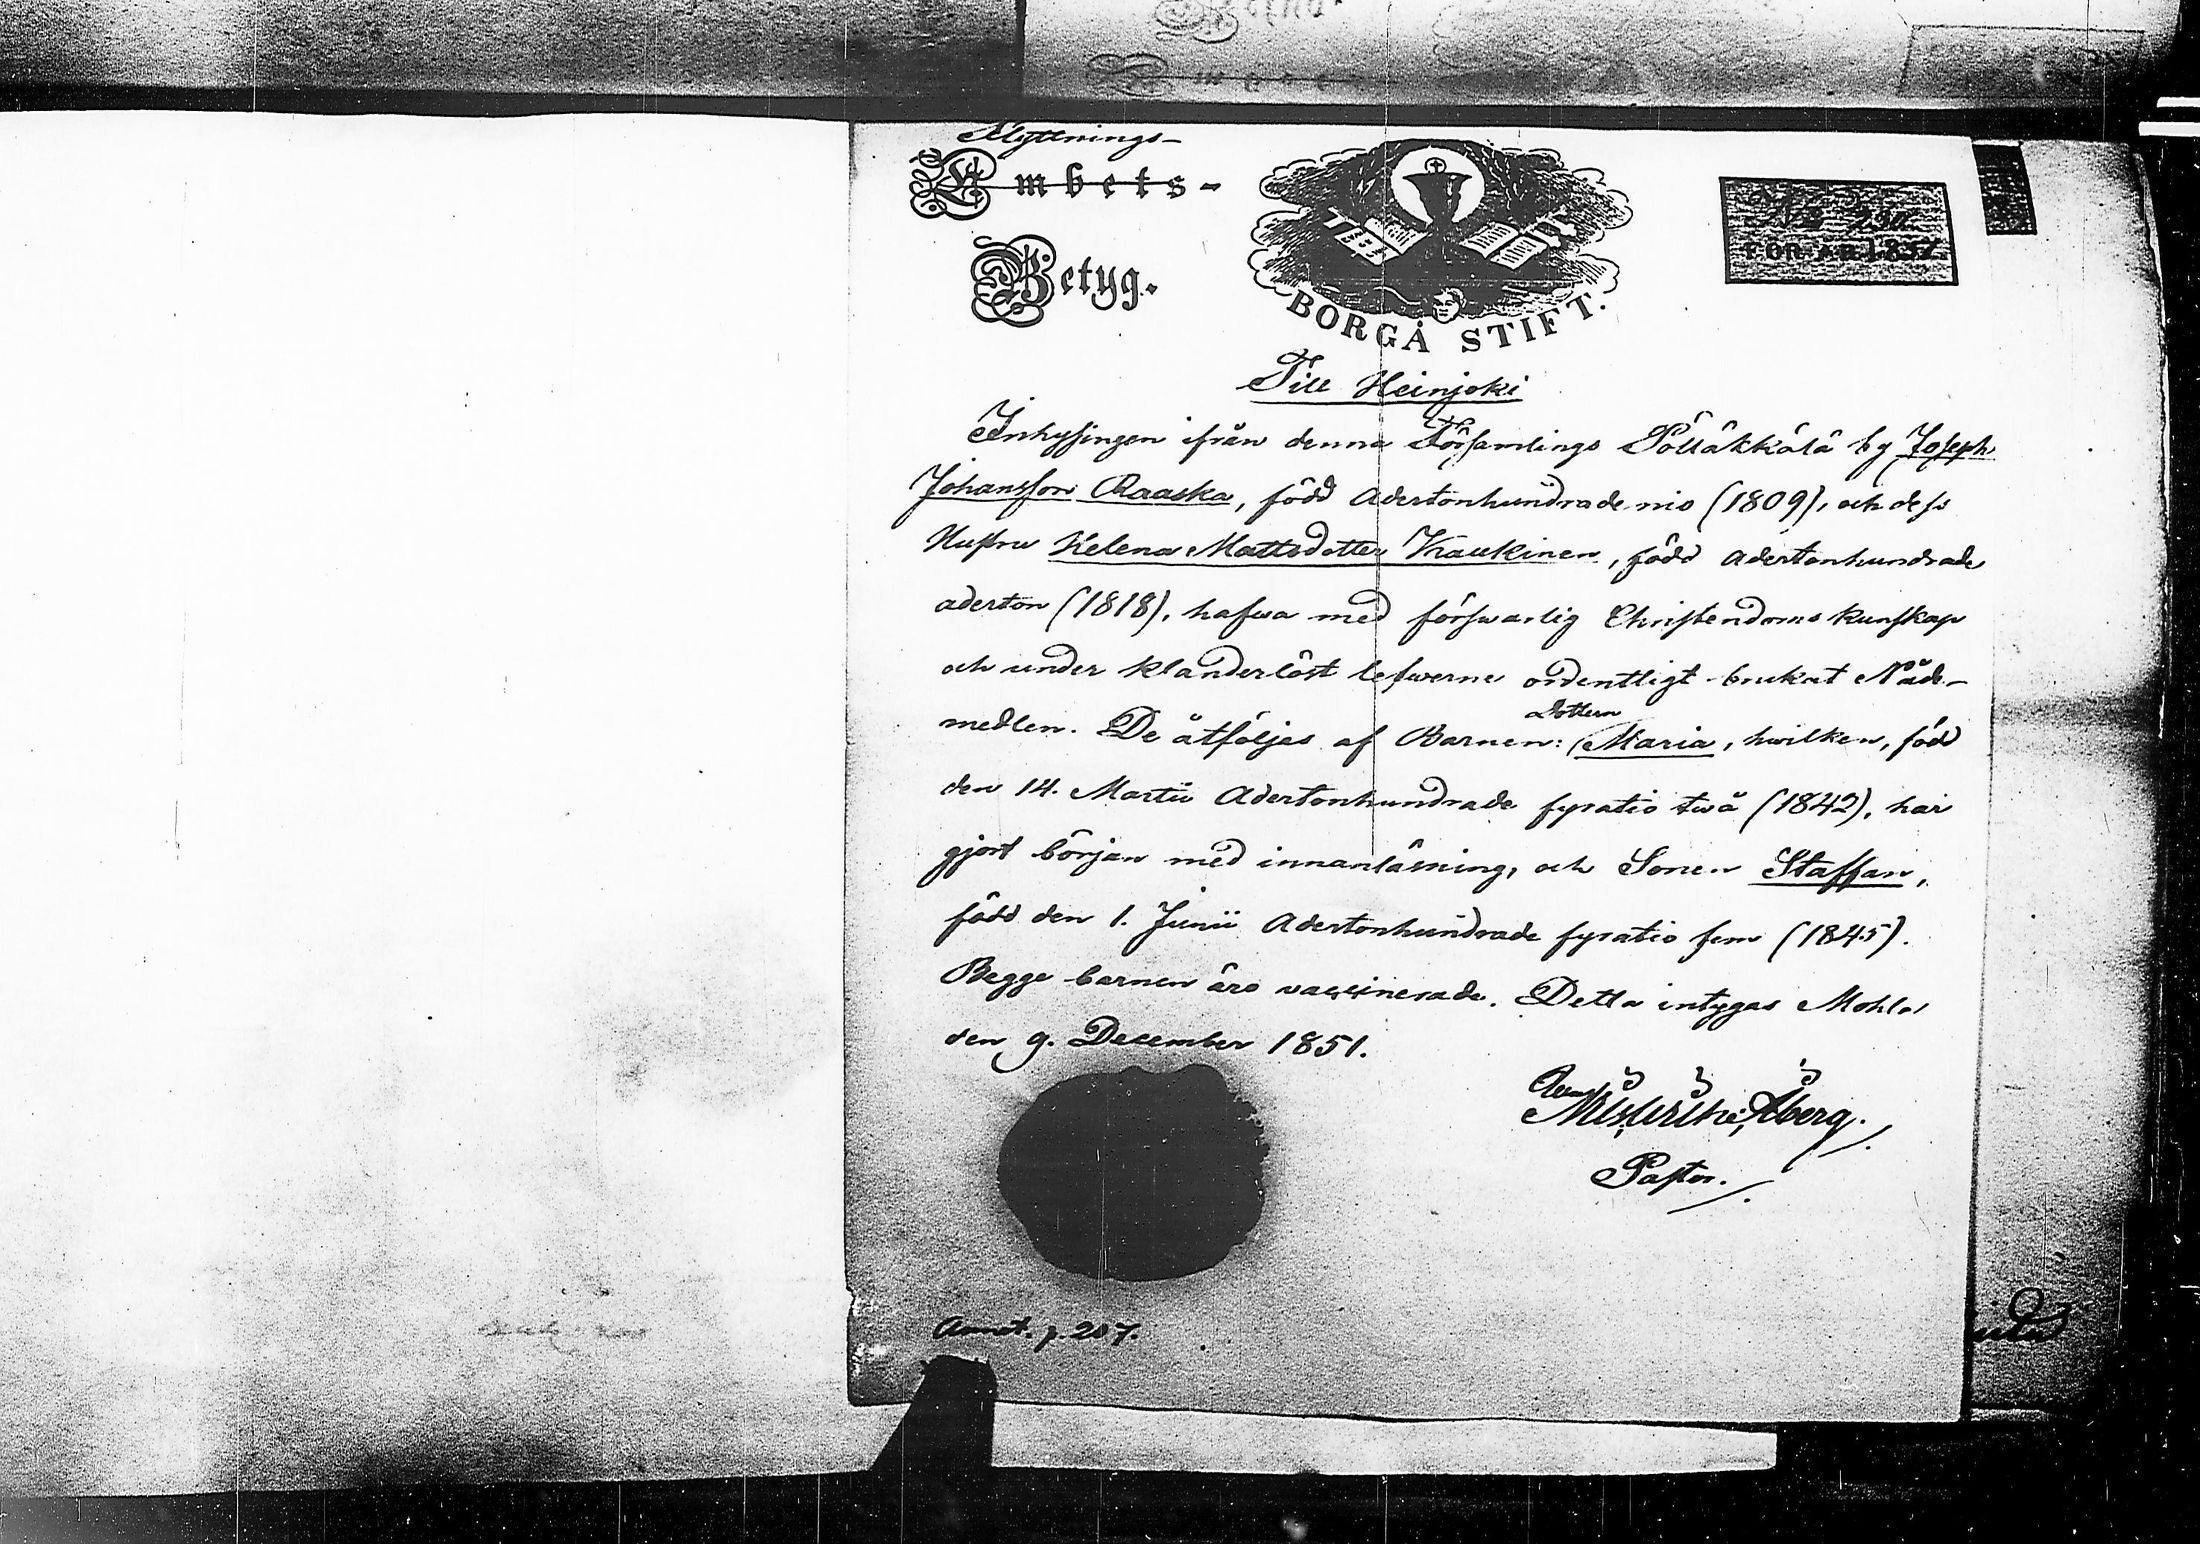 Flyttnings-
Embets-
Betyg.
BORGÅ STIFT.
FÖR ÅR 1851.
Till Heinjoki
Inhysingen ifrån denna Församlings Pölläkkälä by Joseph
Johansson Raaska, född Adertonhundrade nio (1809), och dess
Hustru Helena Mattsdotter Kaukinen, född Adertonhundrade
aderton (1818), hafwa med förswarlig Christendoms kunskap
och under klanderlöst lefwerne ordentligt brukat Nåde-
medlen. De åtföljas af Barnen: Dottern Maria, hwilken, född
den 14. Martii Adertonhundrade fyratio twå (1842), har
gjort början med innanläsning, och Sonen Staffan,
född den 1. Junii Adertonhundrade fyratio fem (1845).
Begge barnen äro vaccinerade. Detta intygas Mohla
den 9. December 1851.
Åberg.
Pastor.
Annot. p. 207.